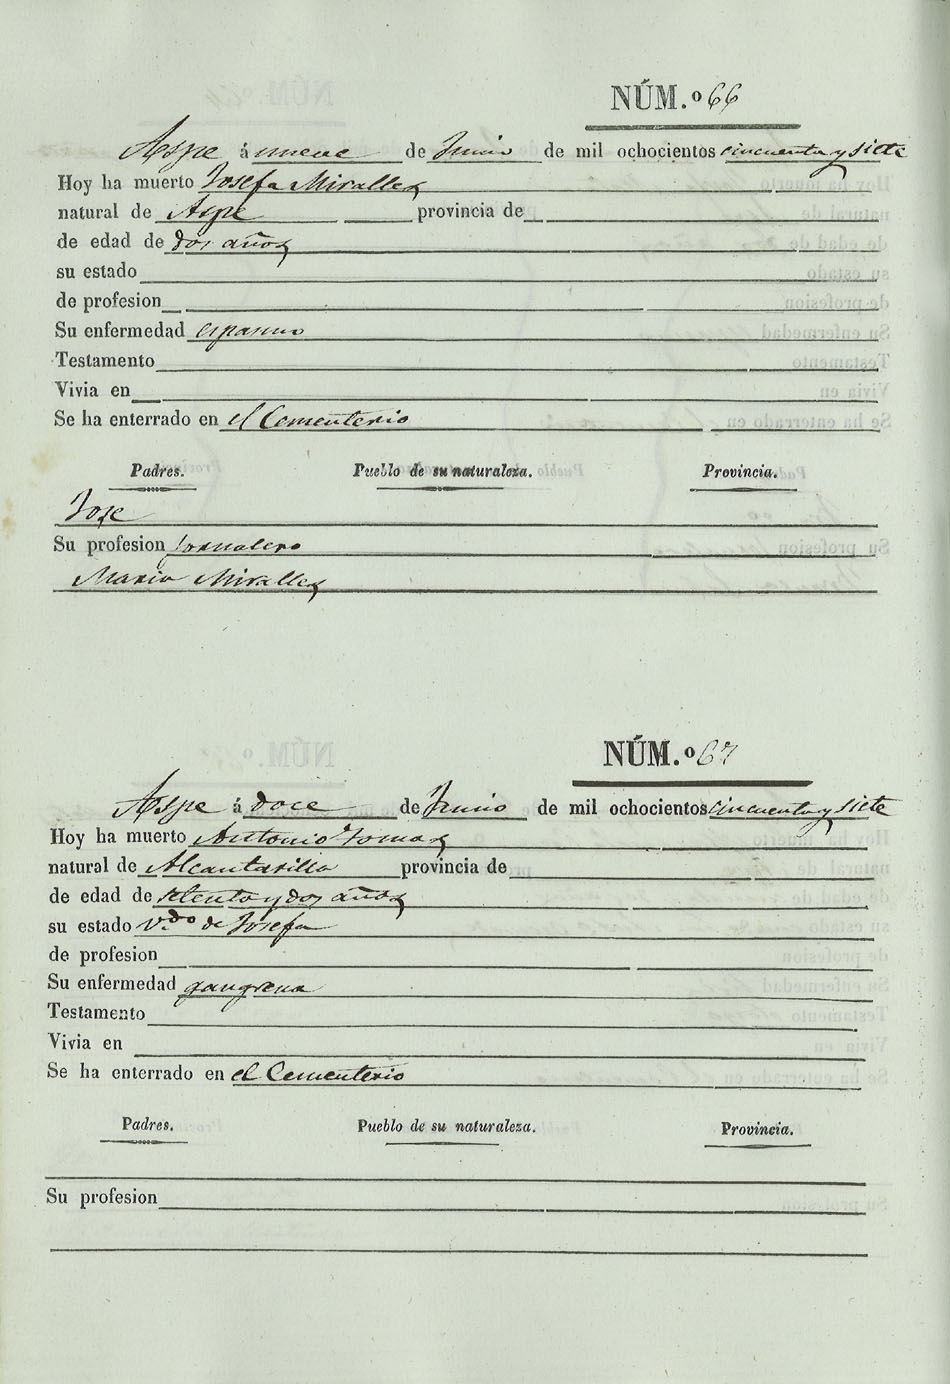 NÚM.º 66
Aspe á nueve de Junio de mil ochocientos cincuenta y siete
Hoy ha muerto Josefa Miralles
natural de Aspe provincia de
de edad de dos años
su estado
de profesion
Su enfermedad espasmo
Testamento
Vivia en
Se ha enterrado en el Cementerio
Padres. Pueblo de su naturaleza. Provincia.
Jose
Su profesion Jornalero
Maria Miralles
NÚM.º 67
Aspe á doce de Junio de mil ochocientos cincuenta y siete
Hoy ha muerto Antonio Tomas
natural de Alcantarilla provincia de
de edad de setenta y dos años
su estado v.do de Josefa
de profesion
Su enfermedad gangrena
Testamento
Vivia en
Se ha enterrado en el Cementerio
Padres. Pueblo de su naturaleza. Provincia.
Su profesion